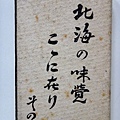 北海の味覚
ここに在り
その